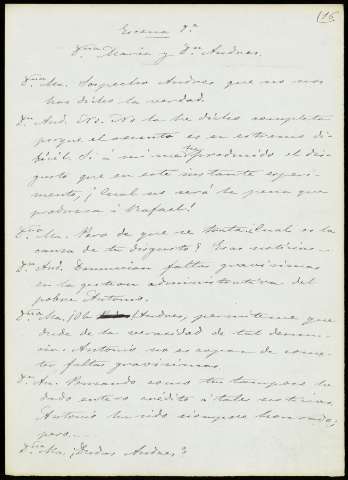 (16
Escena 9ª
Dña. Maria y Dn. Andres.
Dña Ma. Sospecho Andres que no nos
has dicho la verdad.
Dn. And. No. No la he dicho completa
porque el asunto es en extremo di-
fícil. Si á mi me ha producido el dis-
gusto que en este instante experi-
mento, ¡Cual no será la pena que
produzca á Rafael!
Dña. Ma. Pero de que se trata? Cual es la
causa de tu disgusto? Esas noticias...
Dn. And. Denuncian faltas gravísimas
en la gestion administrativa del
pobre Antonio.
Dña. Ma. ¡Oh! Andres, permiteme que
dude de la veracidad de tal denun-
cia. Antonio no es capaz de come-
ter faltas gravísimas.
Dn. An. Pensando como tu tampoco he
dado entero crédito á tales noticias,
Antonio ha sido siempre honrado;
pero....
Dña. Ma. ¿Dudas Andres?